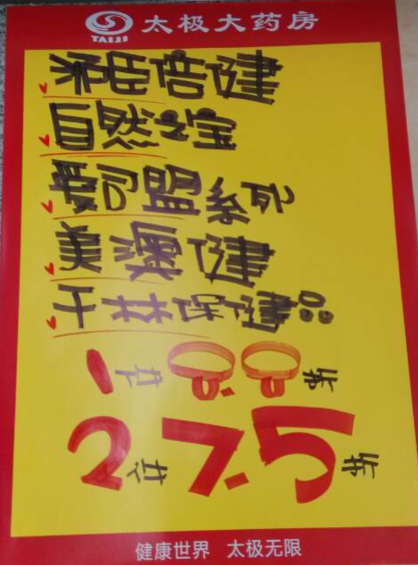 TAIJI 太极大药房
汤臣倍健
自然之宝
爱司盟系列
美澳健
千林保健品
1件8.8折
2件7.5折
健康世界 太极无限